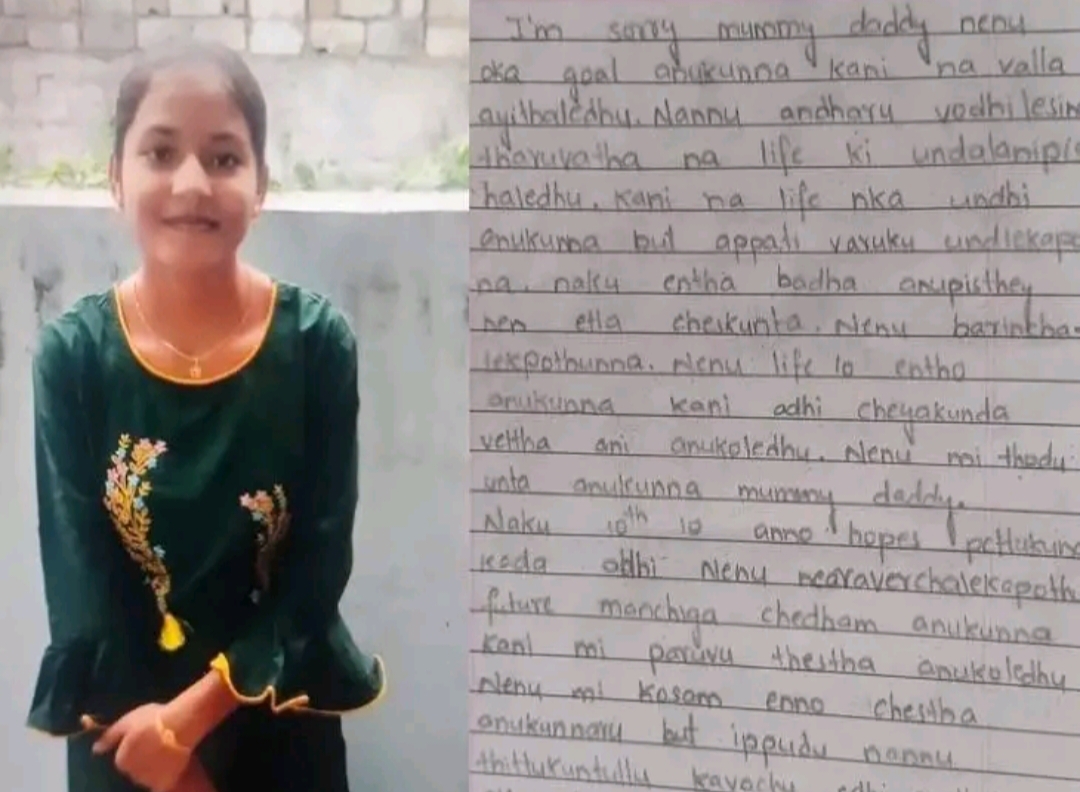 I'm sorry mummy daddy nenu
oka goal anukunna kani na valla
ayithaledhu. Nannu andharu vodhilesin
tharuvatha na life ki undalanipis
haledhu. kani na life nka undhi
anukunna but appati varuku undlekapo
na. naku entha badha anupisthey
nen etla cheskunta. Nenu barintha-
lekpothunna. Nenu life lo entho
anukunna kani adhi cheyakunda
veltha ani anukoledhu. Nenu mi thodu
unta anukunna mummy daddy.
Naku 10th lo anno hopes pettukunn
kada adhi Nenu
future manchiga chedham anukunna
kani mi paruvu thestha anukoledhu
Nenu mi kosam enno chestha
anukunnaru but ippudu nannu
thittukuntullu kavochu adhi